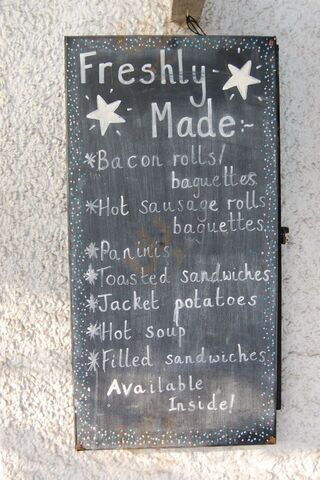 Freshly
Made:-
*Bacon rolls/
baguettes
*Hot sausage rolls
baguettes
*Paninis
*Toasted sandwiches
*Jacket potatoes
*Hot soup
*Filled sandwiches
Available
Inside!